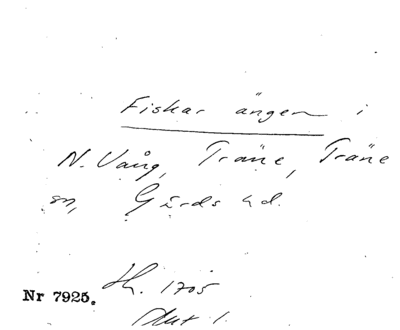 Fiskar ängen i
N. Vång, Träne, Träne
sn, Gärds hd.
Nr 7925. Hh. 1705
Akt 1.